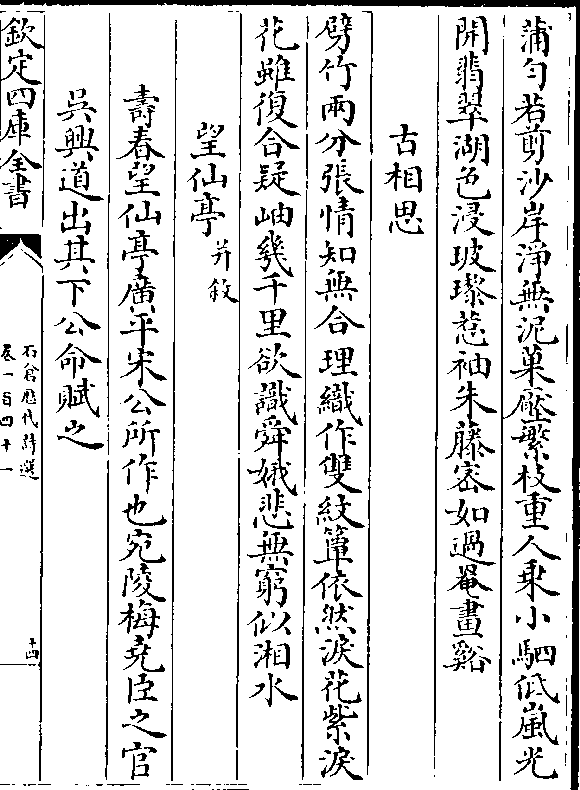 蒲勻若剪沙岸淨無泥菓壓繁枝重人乘小駟低嵐光
開翡翠湖色浸玻瓈惹袖朱藤密如過罨畫谿
古相思
劈竹兩分張情知無合理織作雙紋簟依然淚花紫淚
花雖復合疑岫幾千里欲識舜娥悲無窮似湘水
望仙亭并敘
壽春望仙亭廣平宋公所作也宛陵梅堯臣之官
吳興道出其下公命賦之
欽定四庫全書
石倉歷代詩選
卷一百四十一
十四